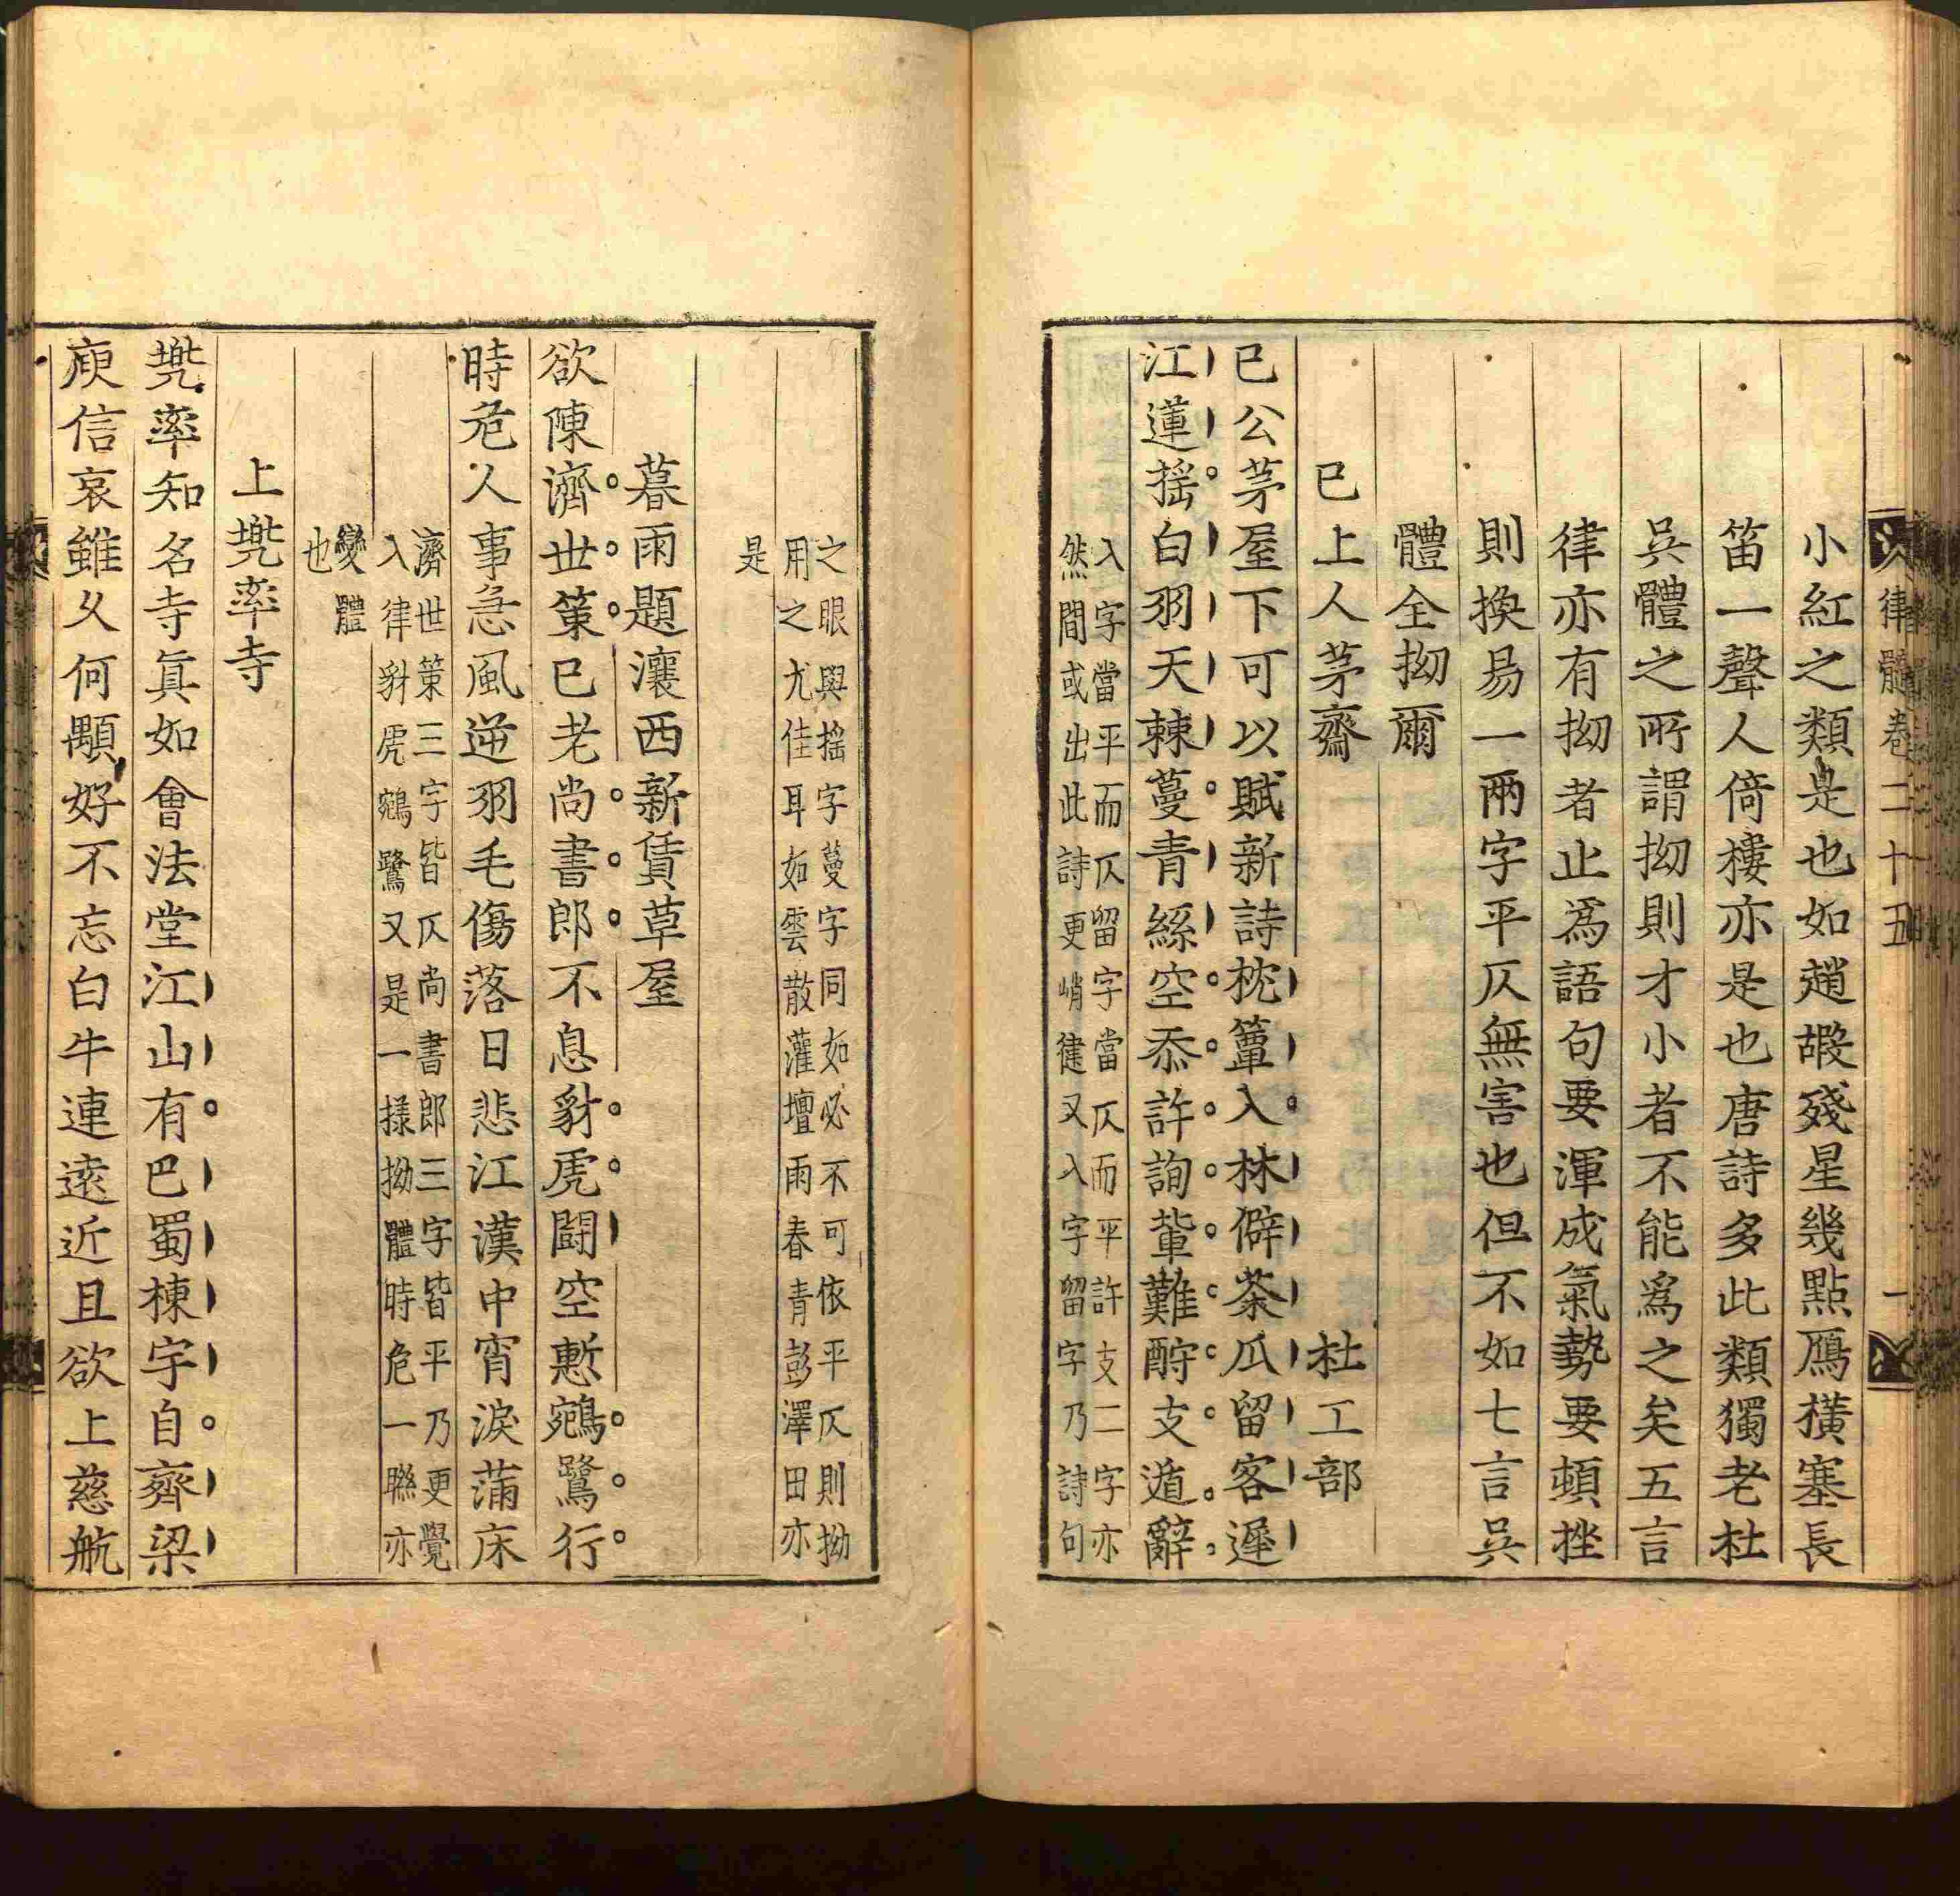 律髓卷二十五 一
小紅之類是也如趙嘏殘星幾點鴈橫塞長
笛一聲人倚樓亦是也唐詩多此類獨老杜
吳體之所謂拗則才小者不能爲之矣五言
律亦有拗者止爲語句要渾成氣勢要頓挫
則換易一兩字平仄無害也但不如七言吳
體全拗爾
巳上人茅齋 杜工部
巳公茅屋下可以賦新詩枕簟入林僻茶瓜留客遲
江蓮搖白羽天棘蔓青絲空忝許詢輩難酧支遁辭
入字當平而仄留字當仄而平許支二字亦
然間或出此詩更峭健又入字留字乃詩句
之眼與搖字蔓字同如必不可依平仄則拗
用之尤佳耳如雲散灌壇雨春青彭澤田亦
是
暮雨題瀼西新賃草屋
欲陳濟世策巳老尚書郎不息豺虎鬪空慙鵷鷺行
時危人事急風逆羽毛傷落日悲江漢中宵淚滿床
濟世策三字皆仄尚書郎三字皆平乃更覺
入律豺虎鵷鷺又是一㨾拗體時危一聯亦
變體
也
上兠率寺
兠率知名寺眞如會法堂江山有巴蜀棟宇自齊梁
庾信哀雖乆何顒好不忘白牛連遠近且欲上慈航